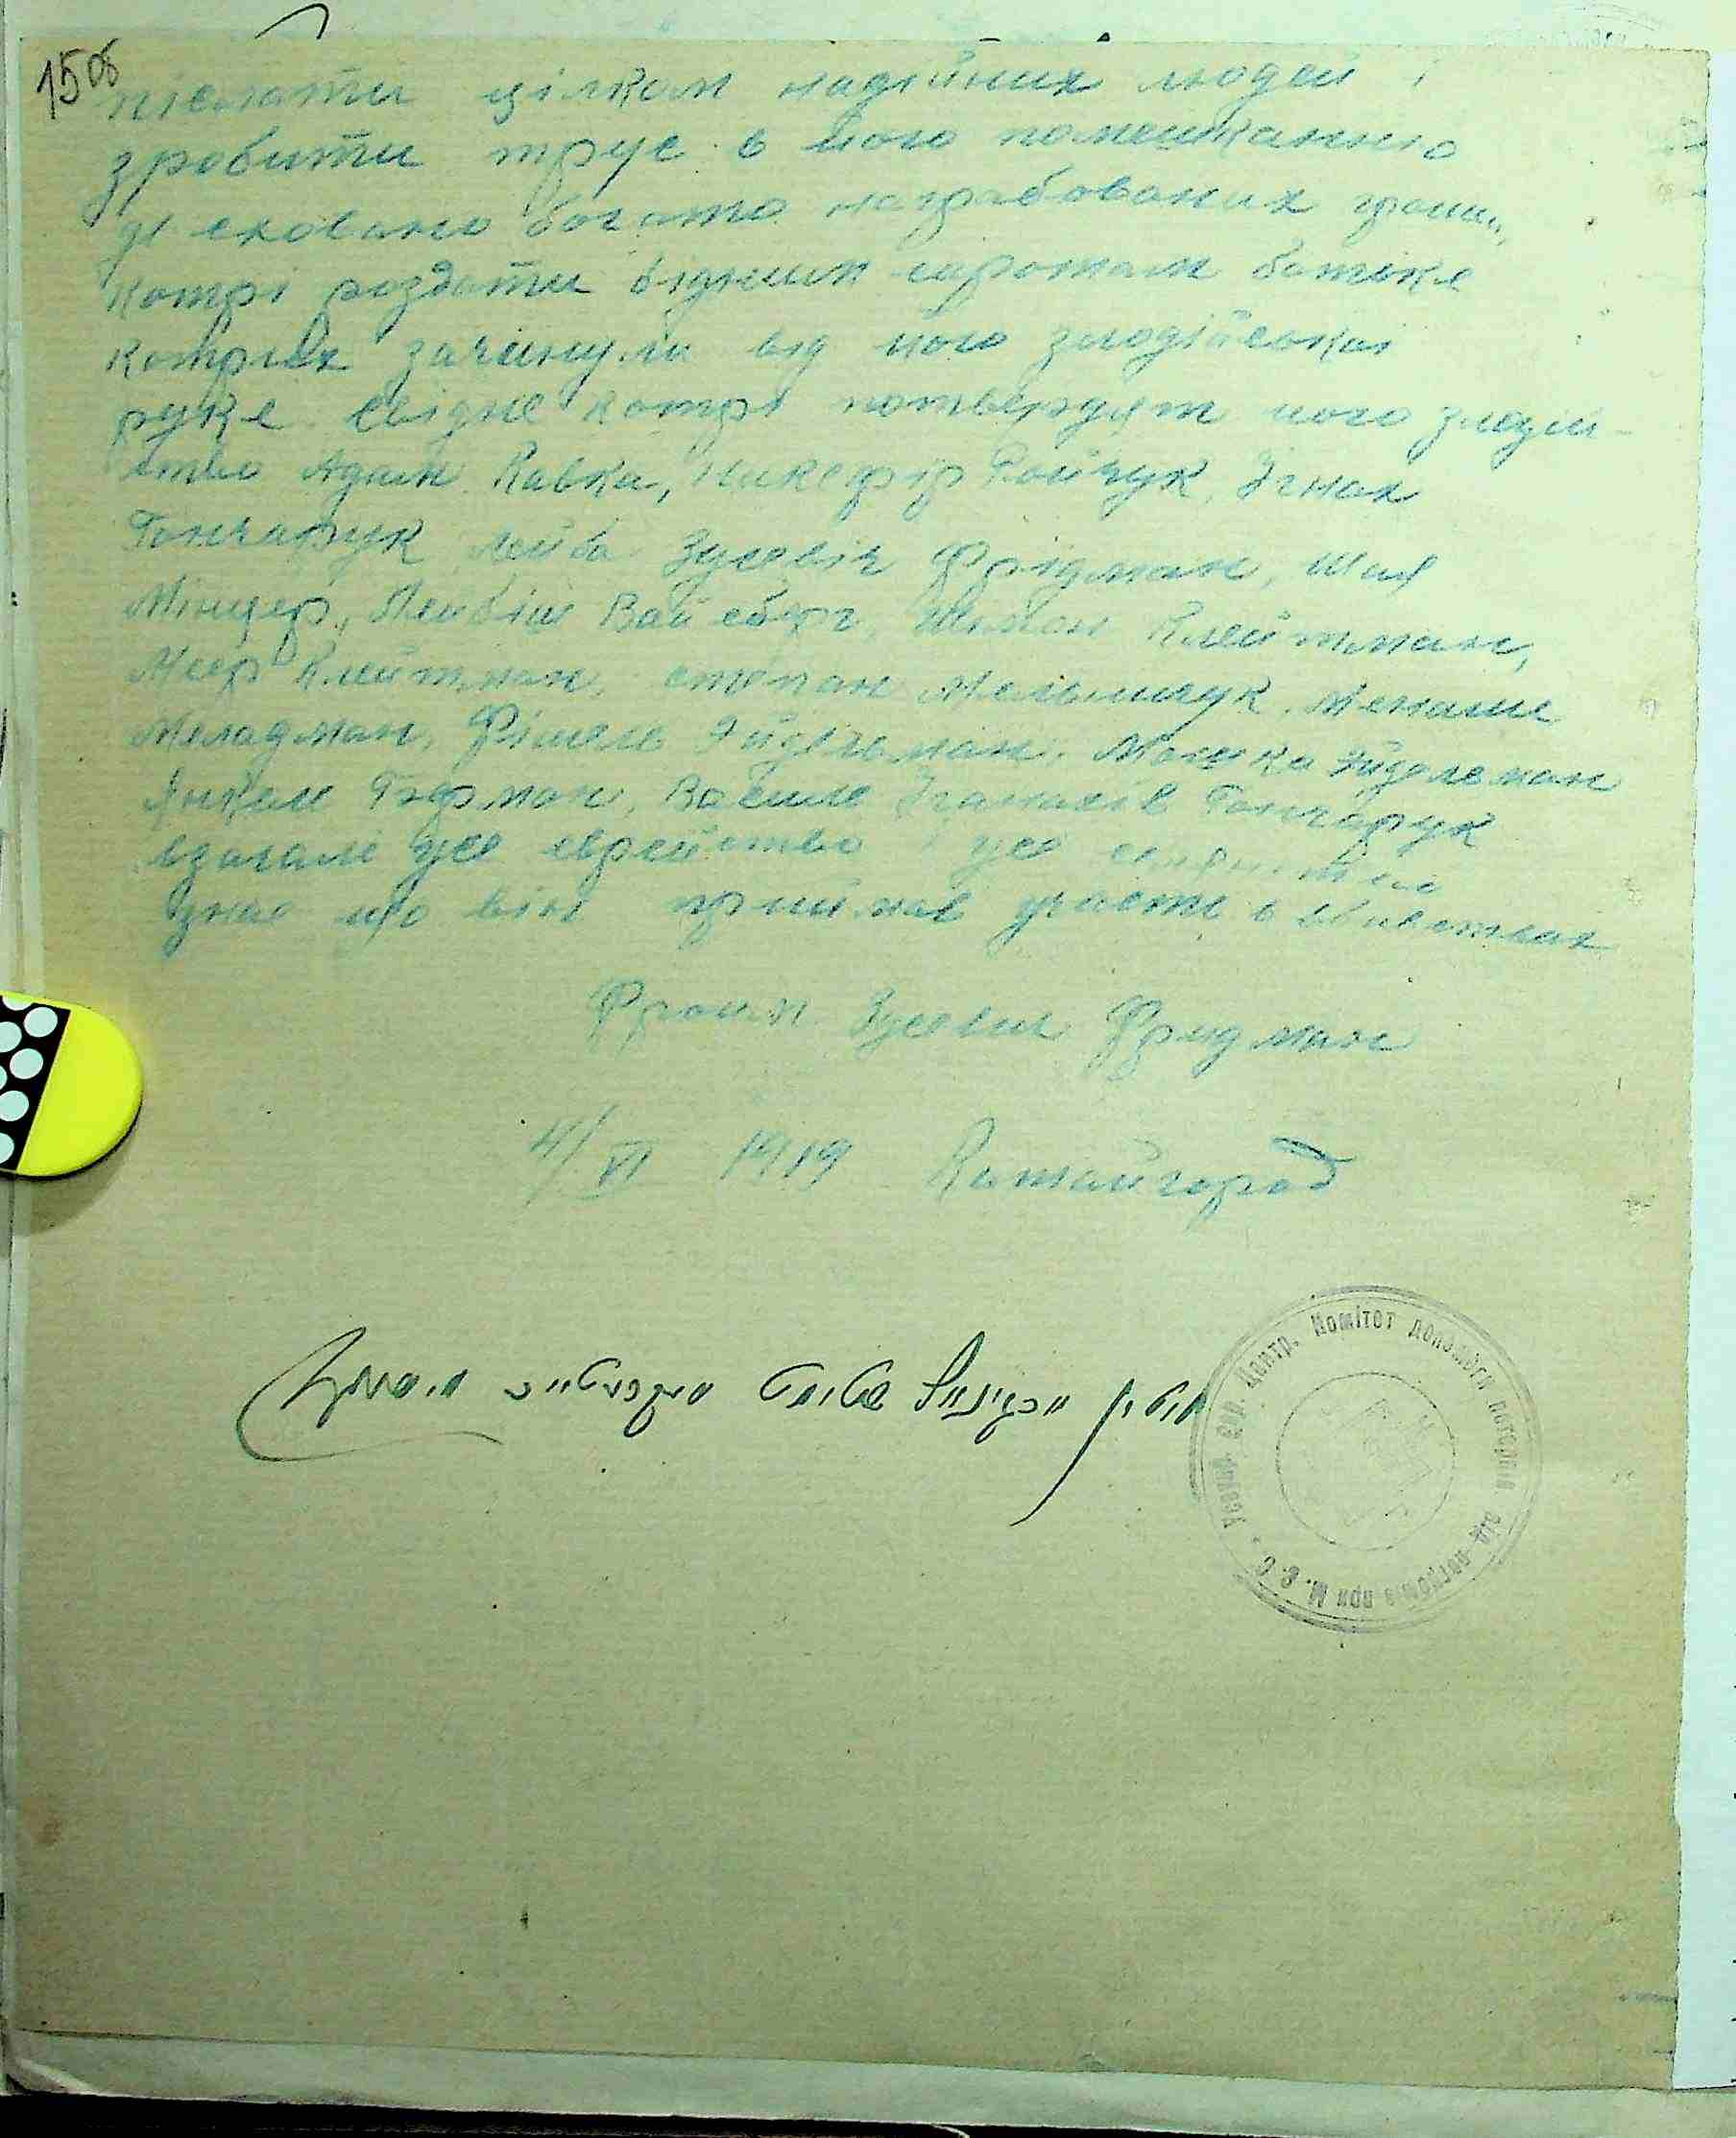 15 об
післати цілком надійних людей і
зробити трус в його помешканню
де сховано богато награбованих грошей,
котрі роздати бідним сиротам батьке
котрих загинуле від його злодійскої
руке. Свідке котрі потвердят його злодій-
ство Адам Кавка, Никефір Ройчук, Ігнах
Гончарук, Лейба Зусевіч Фрідман, Шая
Мінцер, Лейбіш Вайсберг, Шимон Клейтман,
Меєр Клейтман, степан Мельничук, Менаше
Меладман, Фішель Эйдельман, Мошка Эйдельман
Янкель Гофман, Василь Ігнахів Гончарук
взагалі усе єврейство і усе
знає що він приймав участь в вбивствах
Фроим Зусевич Фридман
4/VI 1919 Китайгород
Всеукр. Єв. Центр. Комітет допомоги потерпів. від погромів при М. Є. С.